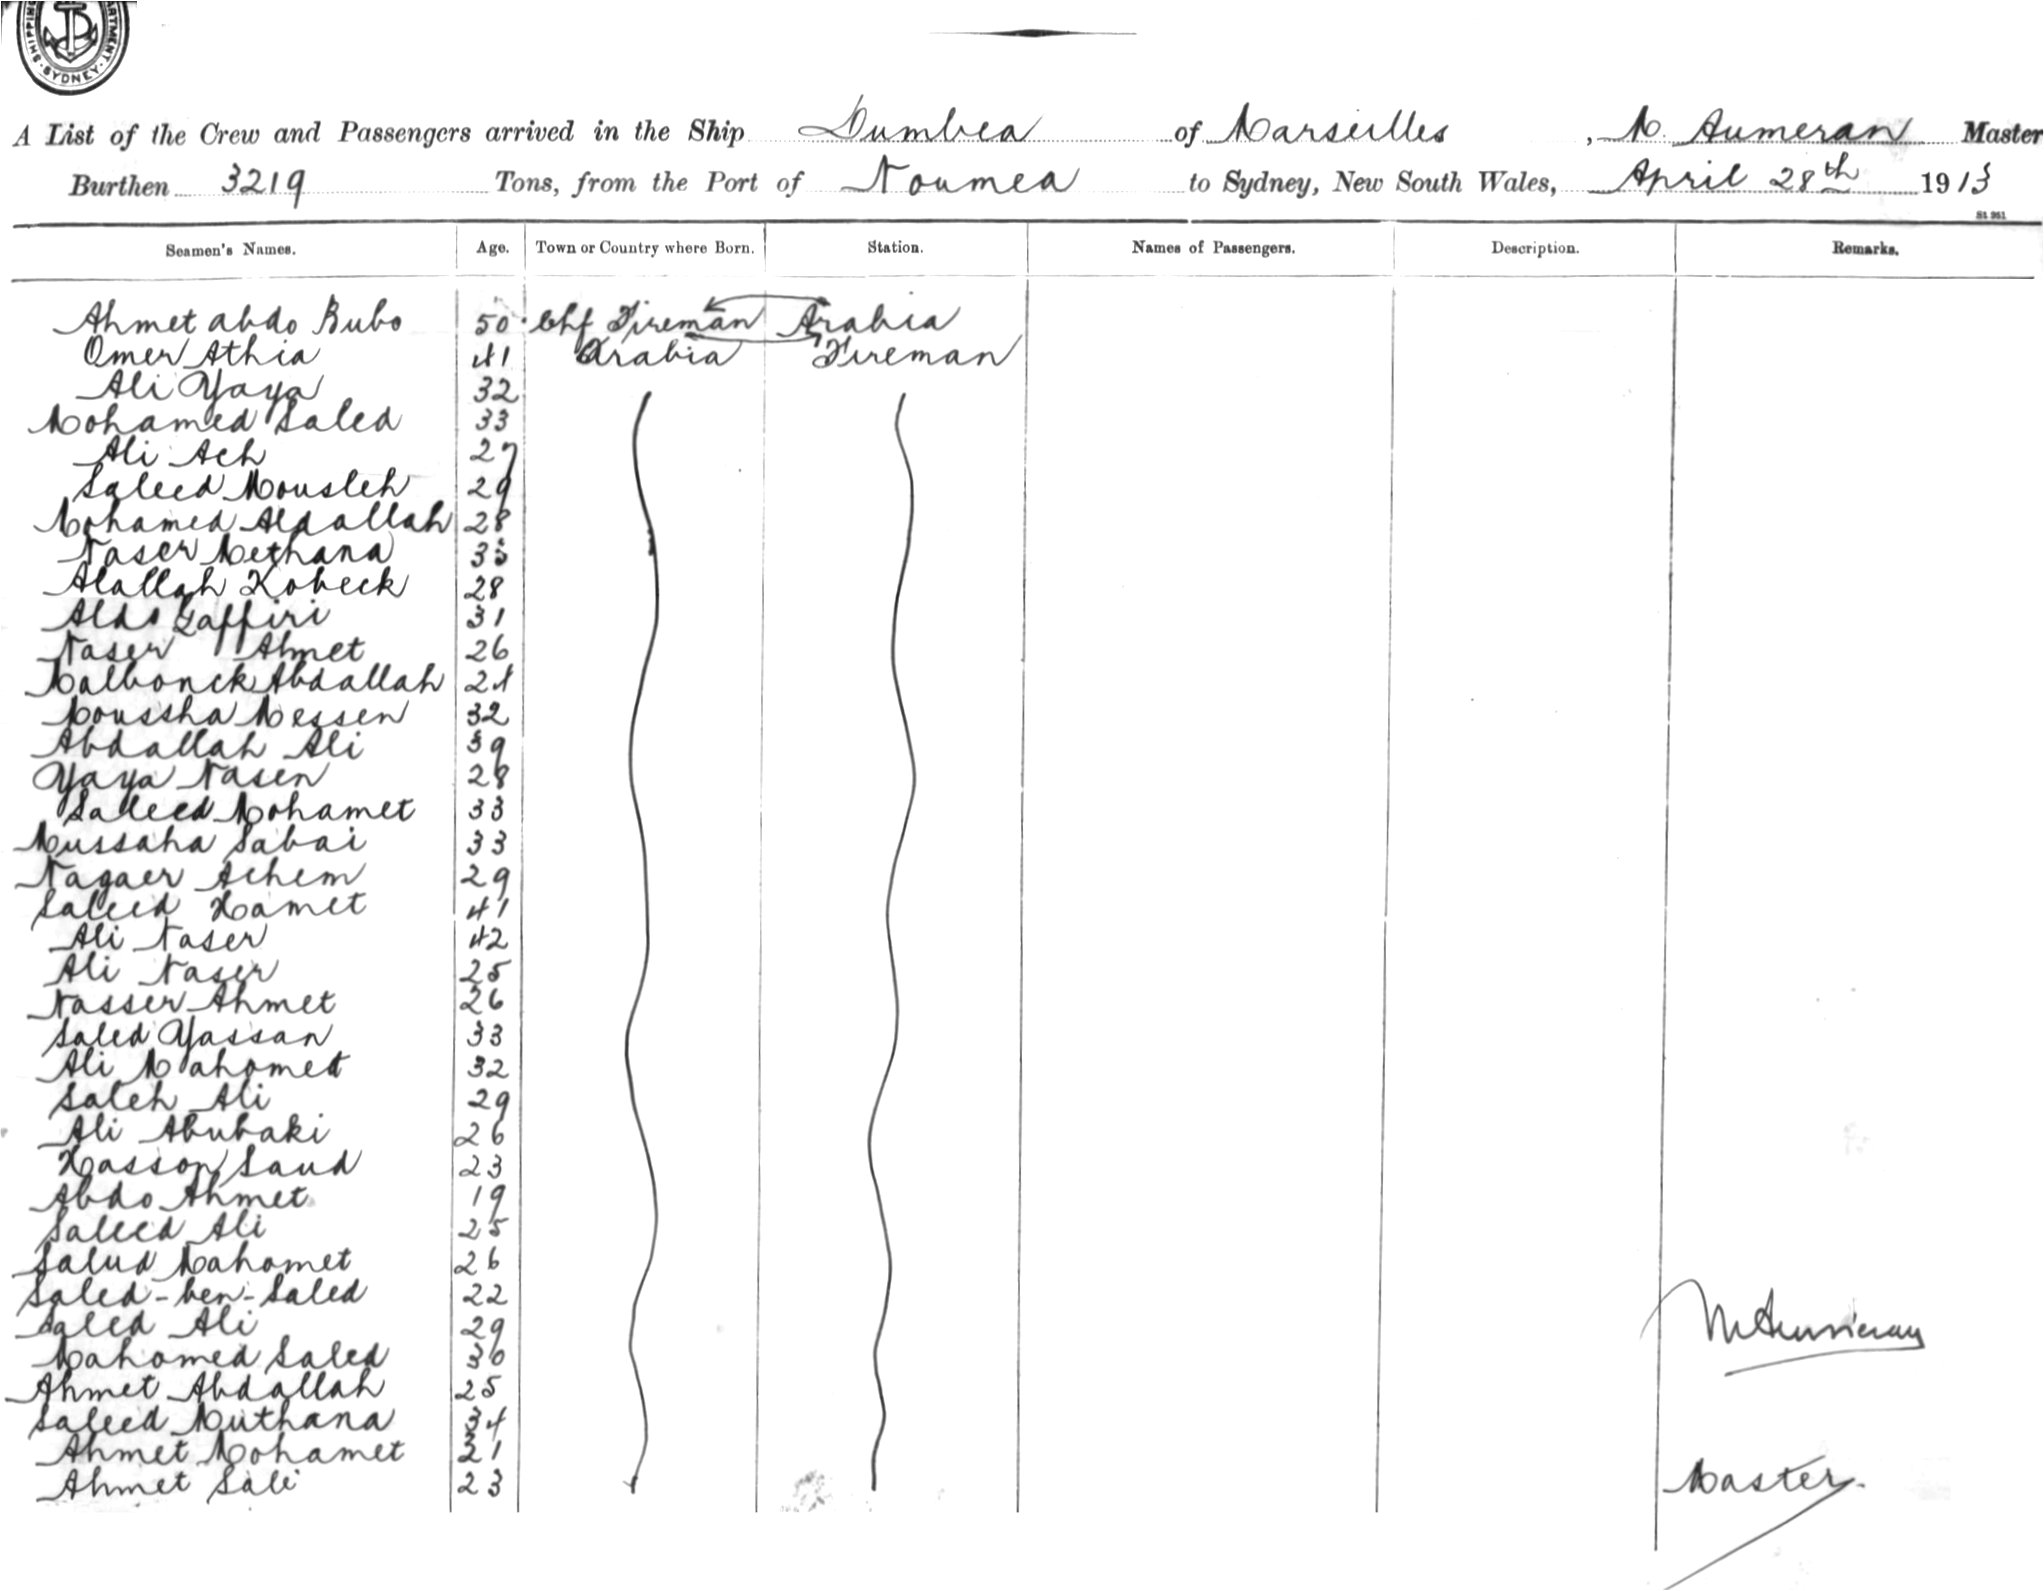 SHIPPING DEPARTMENT SYDNEY
A List of the Crew and Passengers arrived in the Ship Dumbea of Marseilles, M. Aumeran Master
Burthen 3219 Tons, from the Port of Noumea to Sydney, New South Wales, April 28th 1913
St 951
Seamen's Names. Age. Town or Country where Born. Station. Names of Passengers. Description. Remarks.
Ahmet abdo Bubo 50 Chf Fireman Arabia
Omer Athia 41 Arabia Fireman
Ali Yaya 32
Mohamed Saled 33
Ali Ach 27
Saleed Mousleh 29
Mohamed Aldallah 28
Naser Methana 33
Alallah Kobeck 28
Aldo Gaffiri 31
Naser Ahmet 26
Kalbonck Abdallah 24
Moussha Messen 32
Abdallah Ali 39
Yaya Nasen 28
Saleed Mohamet 33
Mussaha Sabai 33
Nagaer Achem 29
Saleed Hamet 41
Ali Naser 42
Ali Naser 25
Nasser Ahmet 26
Saled Yassan 33
Ali Mahomed 32
Saleh Ali 29
Ali Abubaki 26
Hasson Saud 23
Abdo Ahmet 19
Saleed Ali 25
Salud Mahomet 26
Saled-ben-Saled 22
Saled Ali 29
Mahomed Saled 30
Ahmet Abdallah 25
Saleed Muthana 34
Ahmet Mohamet 21
Ahmet Sali 23
M Aumeran
Master.